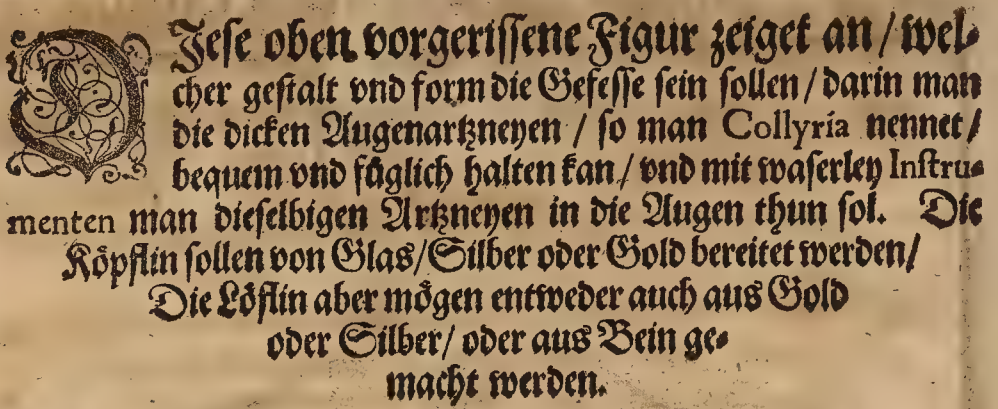 DJese oben vorgerissene Figur zeiget an / wel-
cher gestalt vnd form die Gefesse sein sollen / darin man
die dicken Augenartzneyen / so man Collyria nennet /
bequem vnd füglich halten kan / vnd mit waserley Instru-
menten man dieselbigen Artzneyen in die Augen thun sol. Die
Köpflin sollen von Glas / Silber oder Gold bereitet werden /
Die Löflin aber mögen entweder auch aus Gold
oder Silber / oder aus Bein ge-
macht werden.